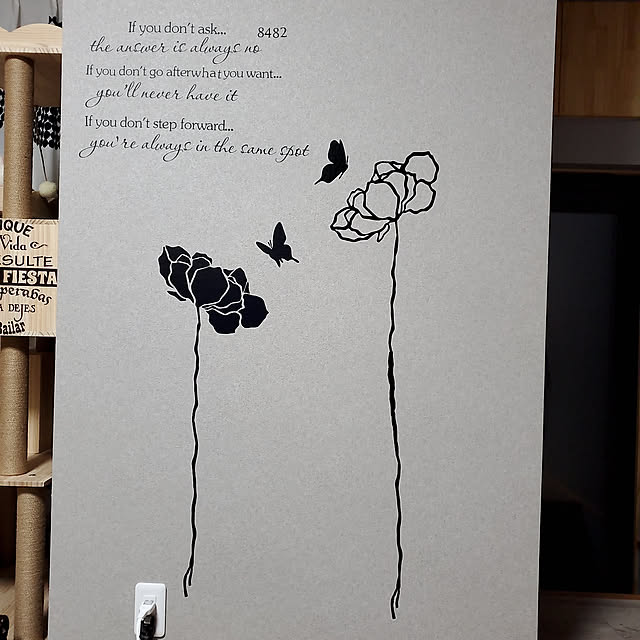 If you don't ask... 8482
the answer is always no
If you don't go afterwhat you want...
you'll never have it
If you don't step forward...
you're always in the same spot
QUE
Vida
ESULTE
FIESTA
perabas
A DEJES
Bailar